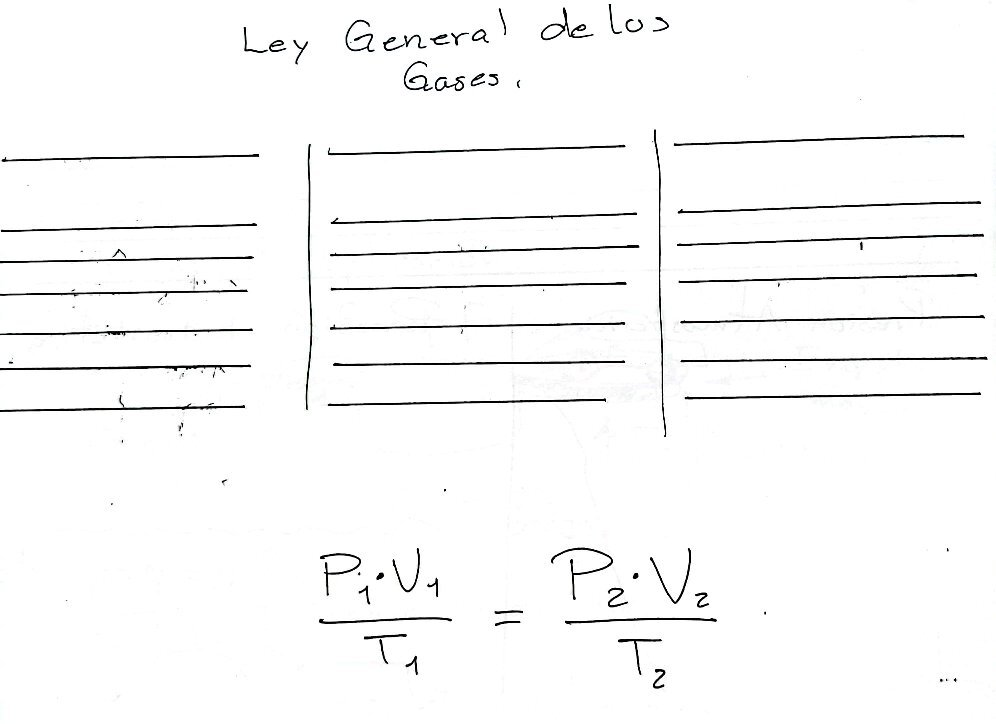 Ley General de los
Gases.
P₁·V₁ / T₁ = P₂·V₂ / T₂
...